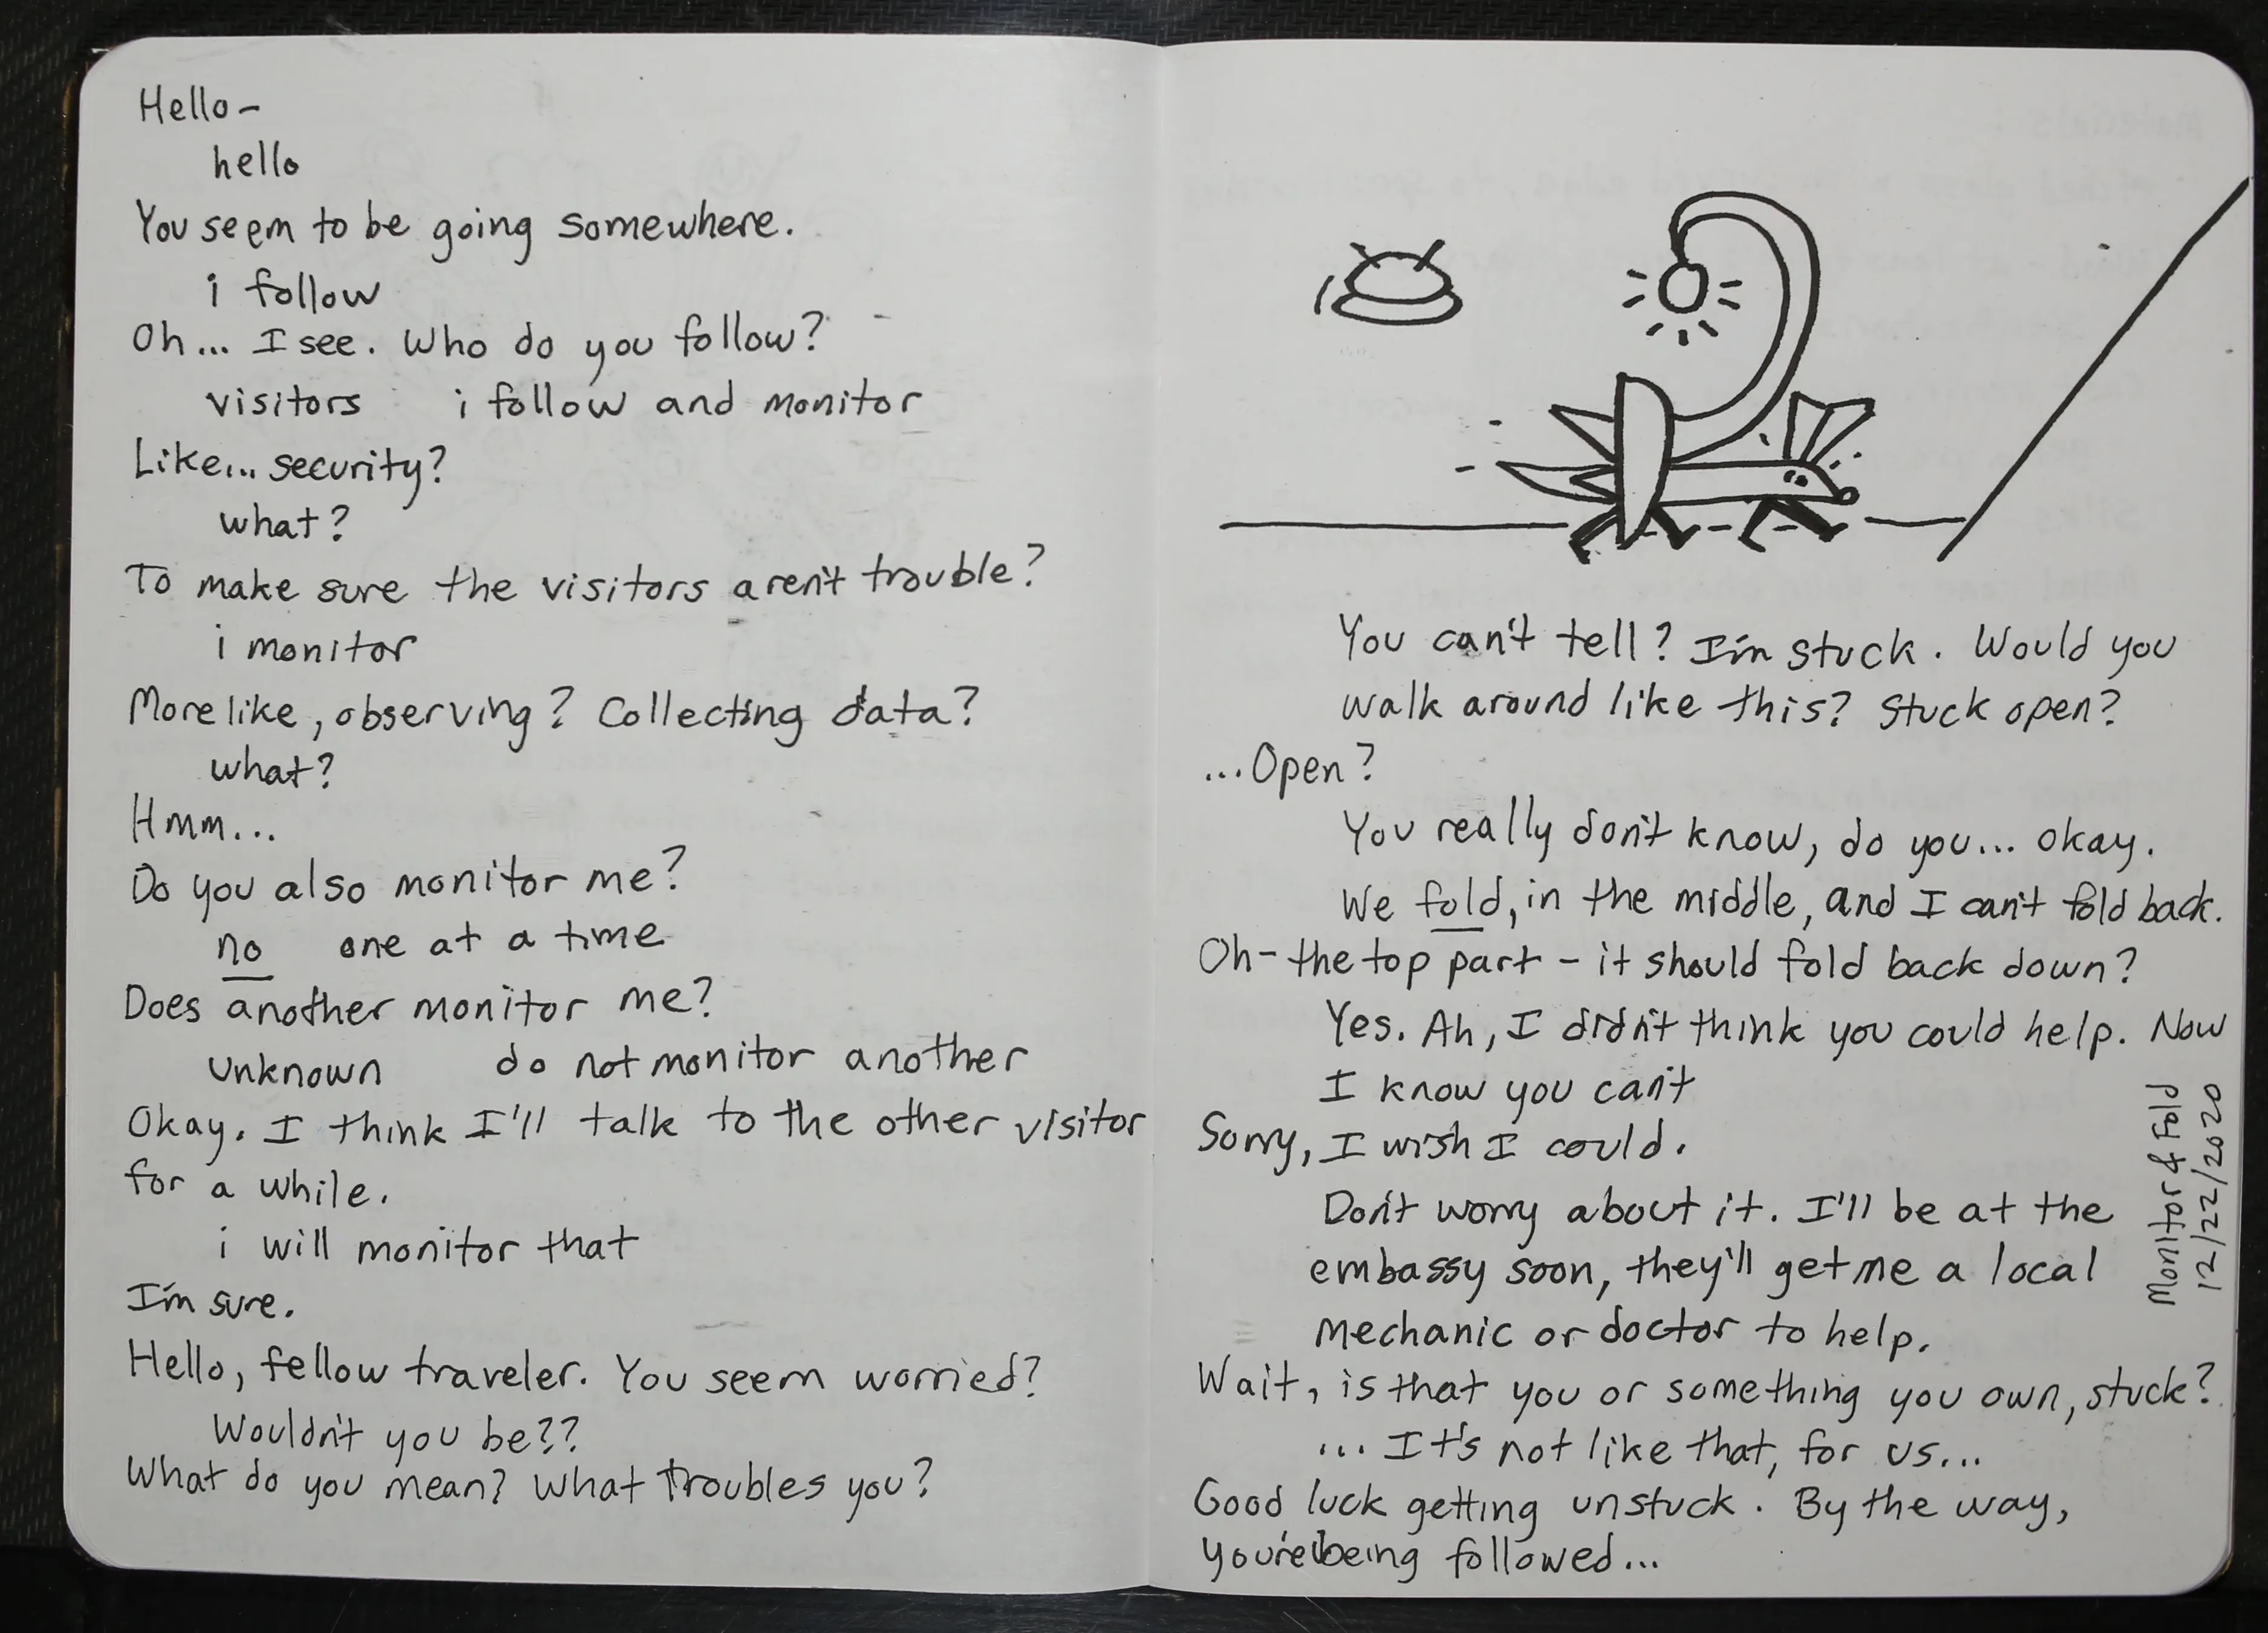 Hello-
hello
You seem to be going somewhere.
i follow
Oh... I see. Who do you follow?
visitors i follow and monitor
Like... security?
what?
To make sure the visitors aren't trouble?
i monitor
More like, observing? Collecting data?
what?
Hmm...
Do you also monitor me?
no one at a time
Does another monitor me?
unknown do not monitor another
Okay. I think I'll talk to the other visitor
for a while.
i will monitor that
I'm sure.
Hello, fellow traveler. You seem worried?
Wouldn't you be??
What do you mean? What troubles you?
You can't tell? I'm stuck. Would you
walk around like this? Stuck open?
...Open?
You really don't know, do you... okay.
We fold, in the middle, and I can't fold back.
Oh- the top part - it should fold back down?
Yes. Ah, I didn't think you could help. Now
I know you can't
Sorry, I wish I could.
Don't worry about it. I'll be at the
embassy soon, they'll get me a local
mechanic or doctor to help.
Wait, is that you or something you own, stuck?
... It's not like that, for us...
Good luck getting unstuck. By the way,
you're being followed...
Monitor & Fold
12/22/2020